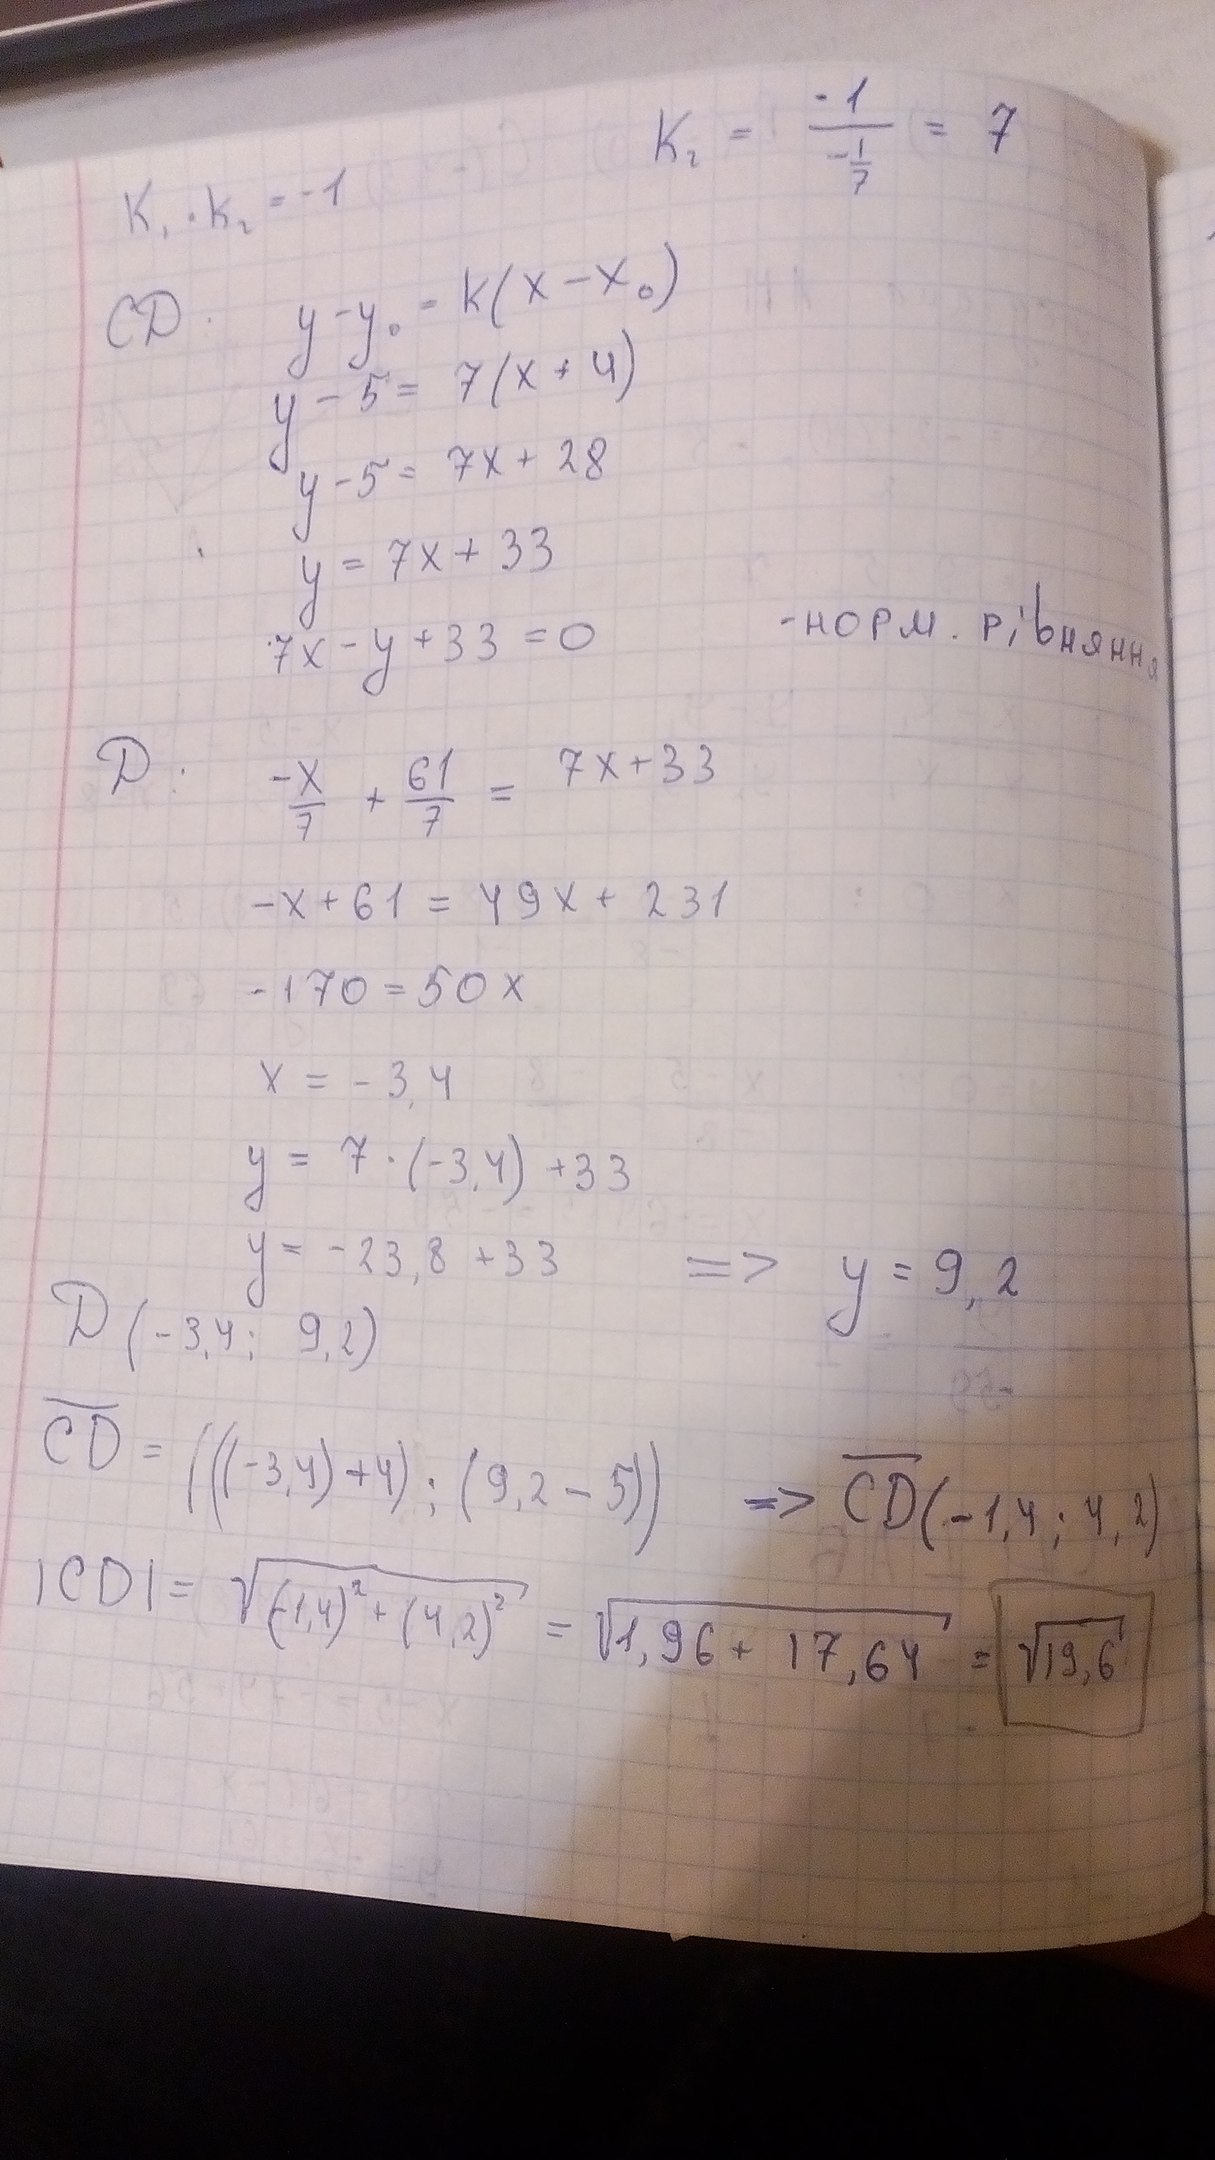 K₁ · K₂ = -1
K₂ = -1/(-1/7) = 7
CD: y - y₀ = K(x - x₀)
y - 5 = 7(x + 4)
y - 5 = 7x + 28
y = 7x + 33
7x - y + 33 = 0 - норм. рівняння
D: -x/7 + 61/7 = 7x + 33
-x + 61 = 49x + 231
-170 = 50x
x = -3,4
y = 7 · (-3,4) + 33
y = -23,8 + 33 => y = 9,2
D(-3,4; 9,2)
C̅D̅ = (((-3,4) + 4); (9,2 - 5)) => C̅D̅(-1,4; 4,2)
|CD| = √((-1,4)² + (4,2)²) = √(1,96 + 17,64) = √19,6